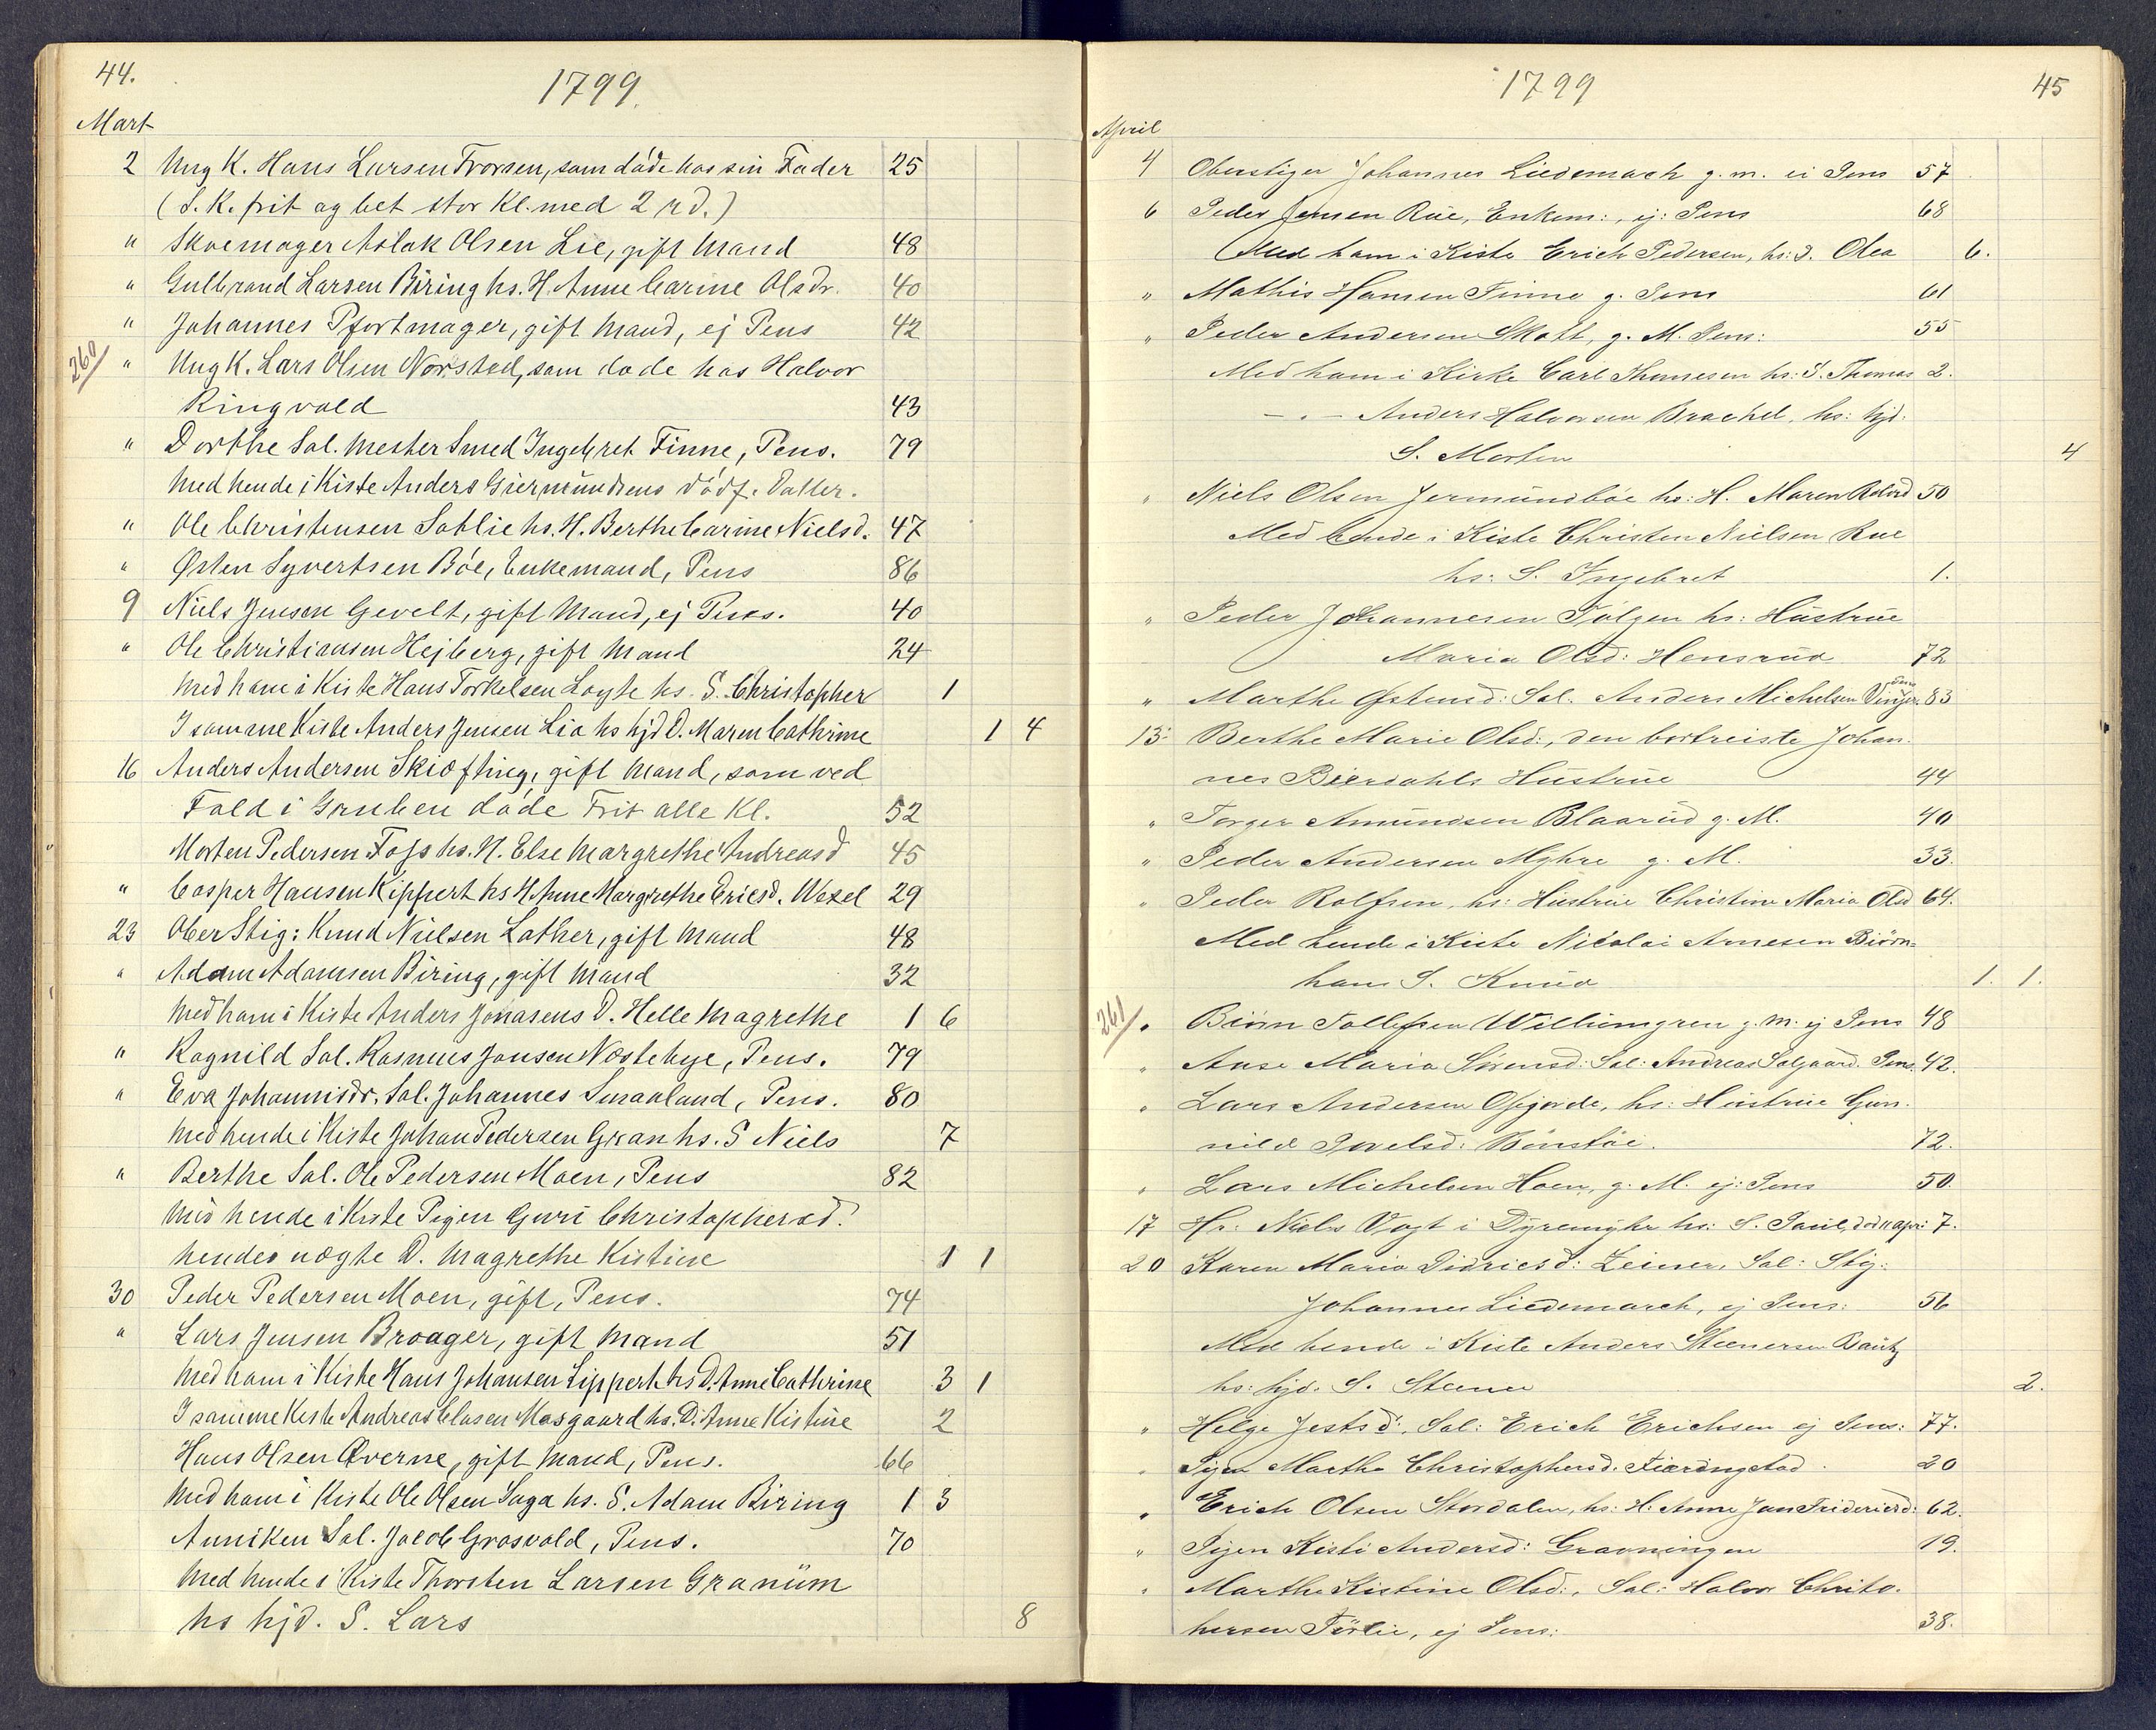 44.
1799.
Mart
2 Ung K. Hans Larsen Trorsen, som döde hos sin Fader 25
(S. K. frit og bet stor Kl. med 2 rd.)
" Skoemager Aslak Olsen Lie, gift Mand 48
" Gulbrand Larsen Biring hs. H. Anne Carine Olsdr. 40
" Johannes Pfortmager, gift Mand, ej Pens 42
260/ " Ung K. Lars Olsen Norstad, som döde hos Halvor
Ringvold 43
" Dorthe Sal. Mester Smed Ingebret Finne, Pens. 79
Med hende i Kiste Anders Giermündsens dödf. Datter.
" Ole Christensen Sohlie hs. H. Berthe Carine Nielsd. 47
" Østen Syvertsen Böe, Enkemand, Pens 86
9 Niels Jensen Gevelt, gift Mand, ej Pens. 40
" Ole Christiansen Hejberg, gift Mand 24
Med ham i Kiste Hans Torkelsen Loyte hs. S. Christopher 1
I samme Kiste Anders Jensen Lia hs hjd D. Maren Cathrine 1 4
16 Anders Andersen Skiöfting, gift Mand, som ved
Fald i Gruben döde Frit alle Kl. 52
" Morten Pedersen Foss hs. H. Else Margrethe Andreasd 45
" Casper Hansen Kippert hs H Anne Margrethe Ericsd. Wexel 29
23 Ober Stig: Knud Nielsen Lather, gift Mand 48
" Adam Adamsen Biring, gift Mand 32
Med ham i Kiste Anders Jonasens D. Helle Magrethe 1 6
" Ragnild Sal. Rasmus Jonsen Nostebye, Pens. 79
" Eva Johannisdr. Sal. Johannes Smaaland, Pens. 80
Med hende i Kiste Johan Pedersen Gran hs. S Niels 7
" Berthe Sal. Ole Pedersen Moen, Pens 82
Med hende i Kiste Pigen Guri Christophersd.
hendes uægte D. Magrethe Kistine 1 1
30 Peder Pedersen Moen, gift, Pens. 74
" Lars Jensen Broager, gift Mand 51
Med ham i Kiste Hans Johansen Lippert hs D. Anne Cathrine 3 1
I samme Kiste Andreas Clasen Mosgaard hs. D. Anne Kistine 2
Hans Olsen Overne, gift Mand, Pens. 66
Med ham i Kiste Ole Olsen Saga hs. S. Adam Biring 1 3
Anniken Sal. Jacob Grosvold, Pens. 70
Med hende i Kiste Thorsten Larsen Granüm
hs hjd. S. Lars 8
1799
45
April
4 Oberstiger Johannes Liedemarch g. m. ei Pens 57
6 Peder Jensen Rüe, Enkem:, ej: Pens 68
Med ham i Kiste Erich Pedersen, hs: D. Olea 6.
" Mathis Hansen Finne g. Pens 61
" Peder Andersen Skott, g. M. Pens: 55
Med ham i Kiste Carl Thomesen hs: S. Thomas 2.
— . — Anders Halvorsen Brachel, hs: hjd.
S. Morten 4
" Niels Olsen Jermündböe hs: H. Maren 50
Med hende i Kiste Christen Nielsen Rue
hs: S. Ingebret 1.
" Peder Johannesen Tolgen hs: Hüstrüe
Maria Olsd: Hensrüd 72
" Marthe Østensd: Sal. Anders Michelsen Vinger 83
13 Berthe Marie Olsd:, den bortreiste Johan
nes Bierdahls Hüstrüe 44
" Torger Amündsen Blaarüd g. M. 40
" Peder Andersen Myhre g. M. 33.
" Peder Rolfsen, hs: Hüstrüe Christine Maria Olsd 64.
Med hende i Kiste Nicolai Arnesen Biørn-
hans S. Knüd 1. 1.
261/ " Biørn Tollefsen Willumgren g. m. ej Pens 48
" Anse Maria Sørensd: Sal: Andreas Solgaard. Pens. 42.
" Lars Andersen Opgjorde, hs: Hüstrüe Gun-
nild Povelsd: Bønsköe. 72.
" Lars Michelsen Hoen, g. M. ej: Pens 50.
17 Hr: Niels Vogt i Dyremyhr hs: S. Paul, död 11 apr: 7.
20 Karen Maria Didricsd: Zeiner, Sal: Stig:
Johannes Liedemarch, ej Pens: 56
Med hende i Kiste Anders Steenersen Bautz
hs: hjd. S. Steener 2.
" Helge Jestsd:, Sal: Erich Erichsen ej Pens: 77.
" Pigen Marthe Christophersd. Fierdingstad. 20
" Erich Olsen Stordalen, hs: H: Anne Jan Fridericsd: 62.
" Pigen Kisti Andersd: Gravningen 19.
" Marthe Kistine Olsd:, Sal: Halvor Christo-
hersen Förlie, ej Pens: 38.